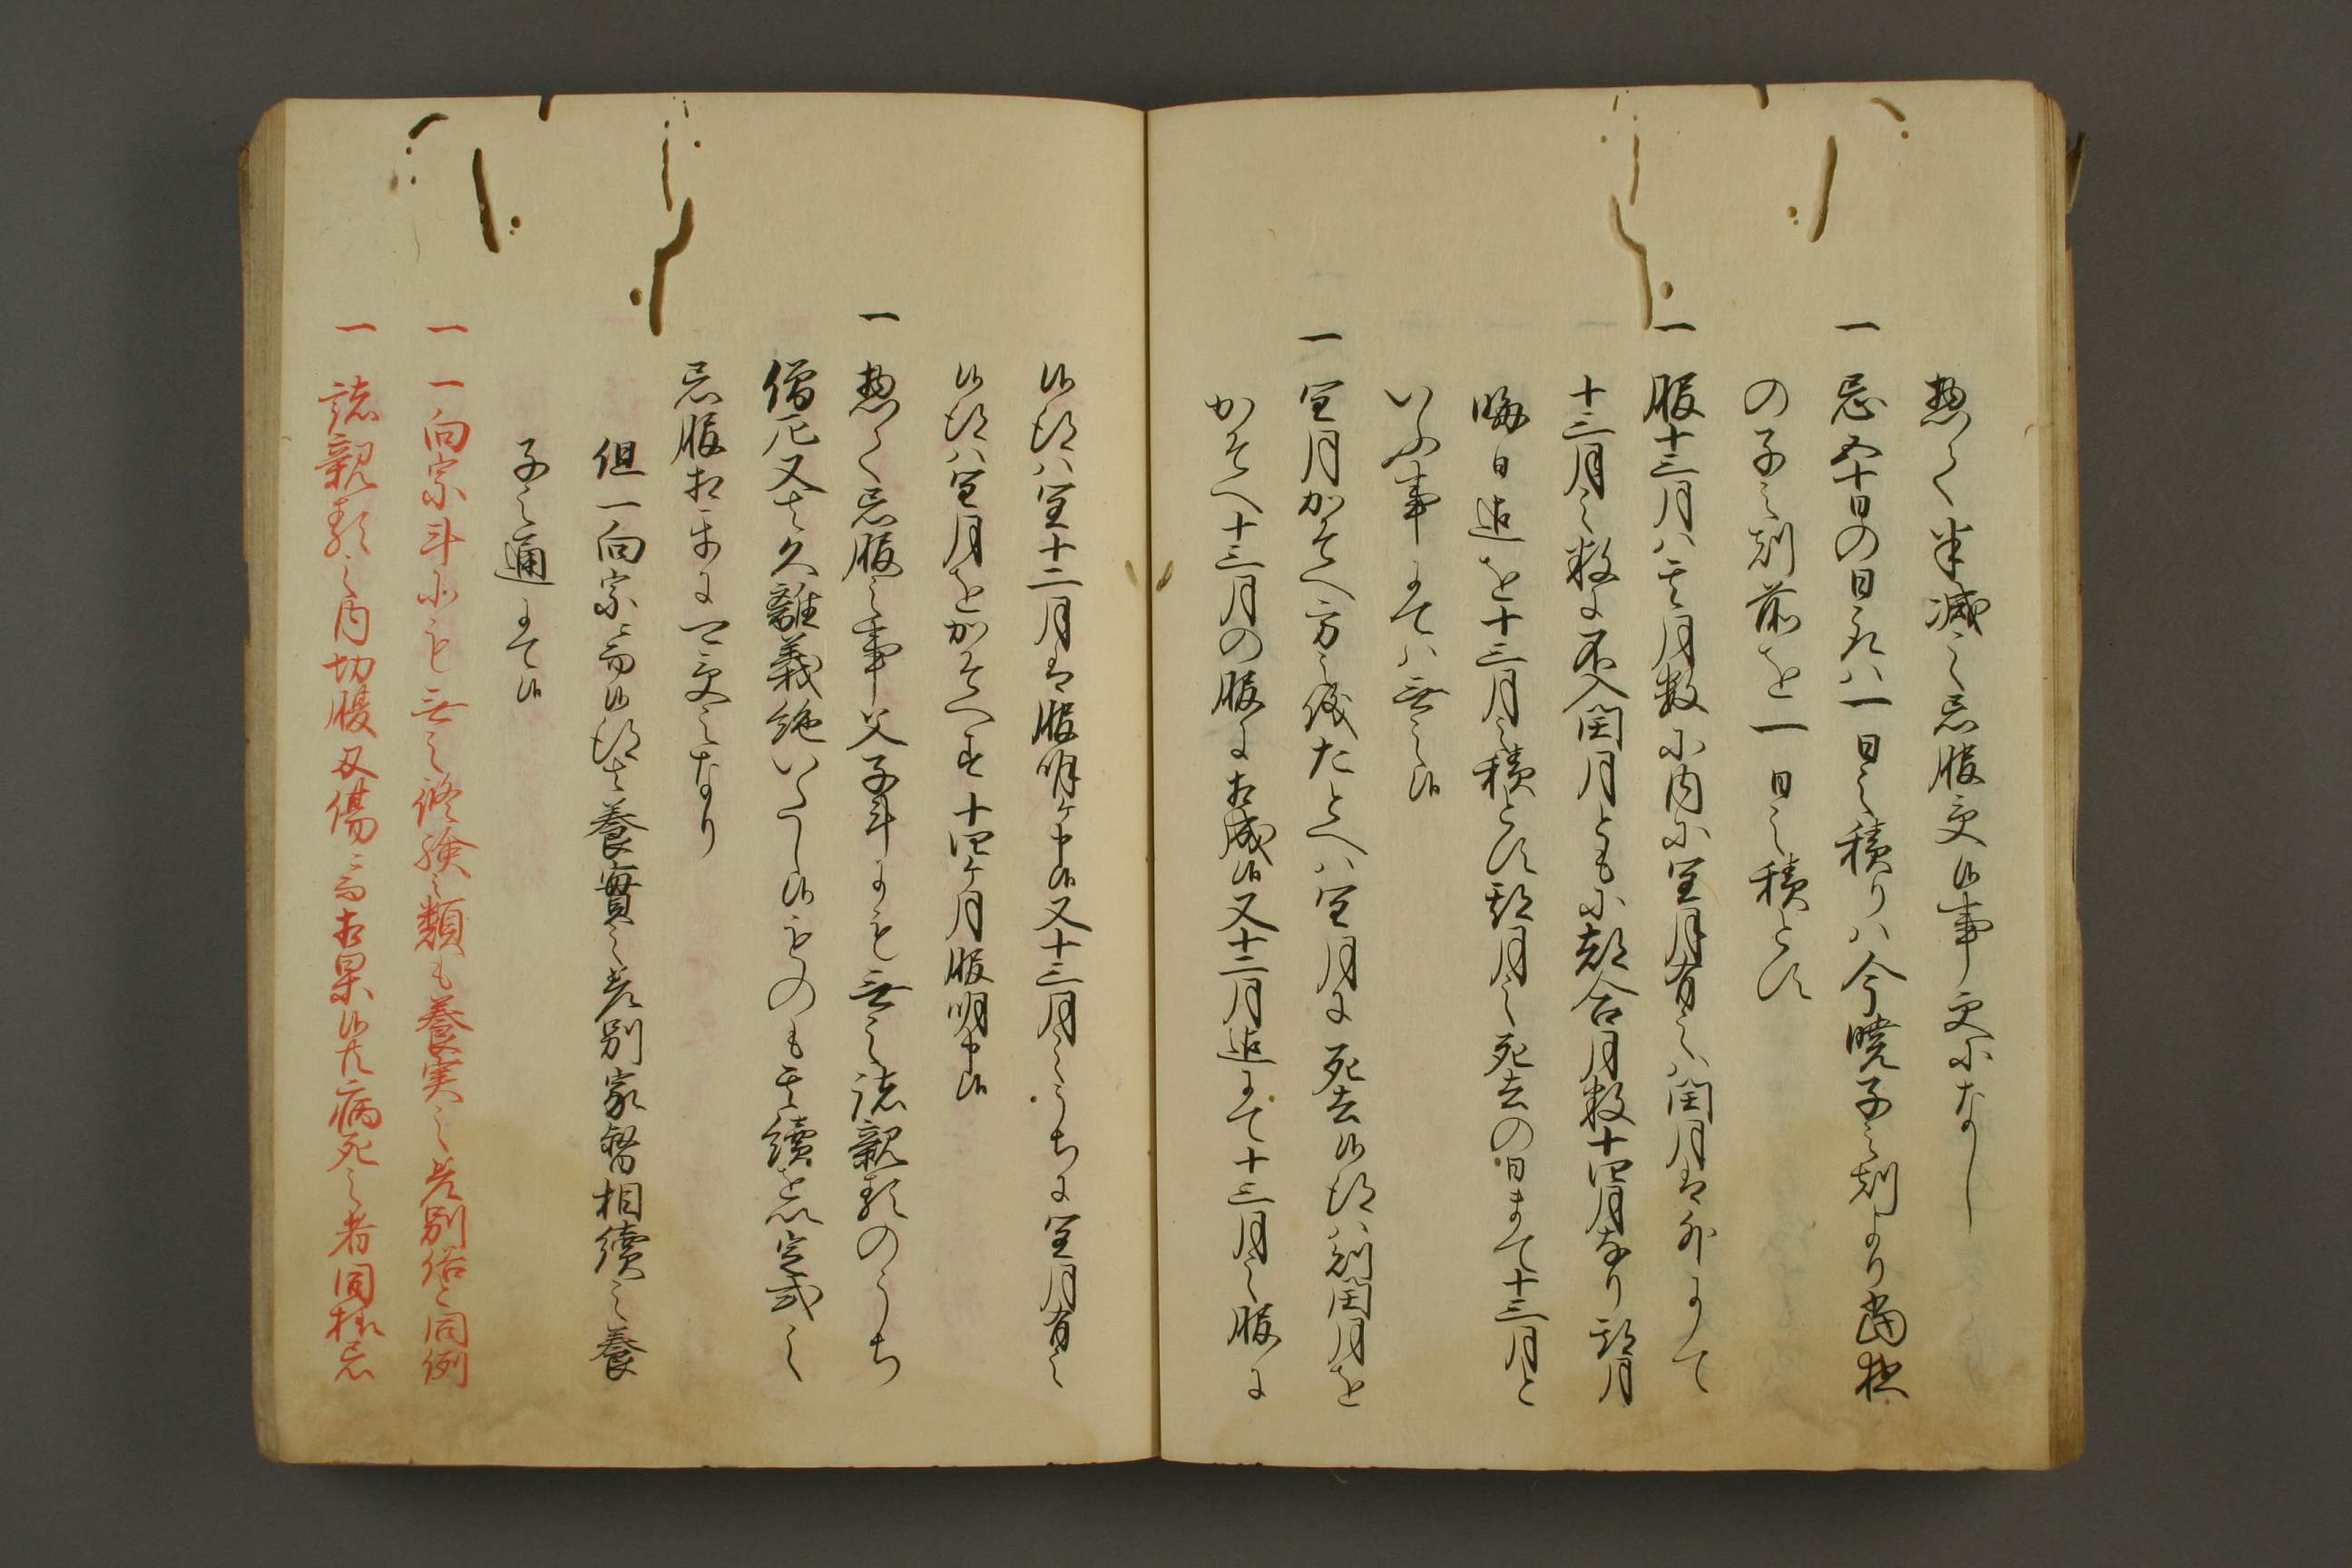 惣て半減之忌服受候事更になし
一 忌五十日の日取ハ一日之積りハ今暁子之刻より當夜
の子之刻前を一日之積とす
一 服十三月ハ其月数に内に閏月有之ハ閏月を外にて
十三月之数に不入閏月ともに都合月数十四月なり翌月
晦日迄を十三月之積とす翌月之死去の日まて十三月と
いふ事にてハ無之候
一 閏月かそへ方之儀たとへハ閏月に死去候得ハ則閏月を
かそへ十三月の服に相成候又十二月迄にて十三月之服に
候得ハ閏十二月を服明ケ申候又十三月之うちに閏月有之
候得ハ閏月をかそへす十四ケ月服明申候
一 惣て忌服之事父子斗にも無之諸親類のうち
僧尼又ハ久離義絶いたし候ものも其續を以定式之
忌服相守に可受之なり
但一向宗ニ而候得ハ養實之差別家督相續之養
子之通にて候
一 一向宗斗にも無之修験之類も養実之差別俗と同例
一 諸親類之内切腹刃傷ニ而相果候共病死之者同様忌